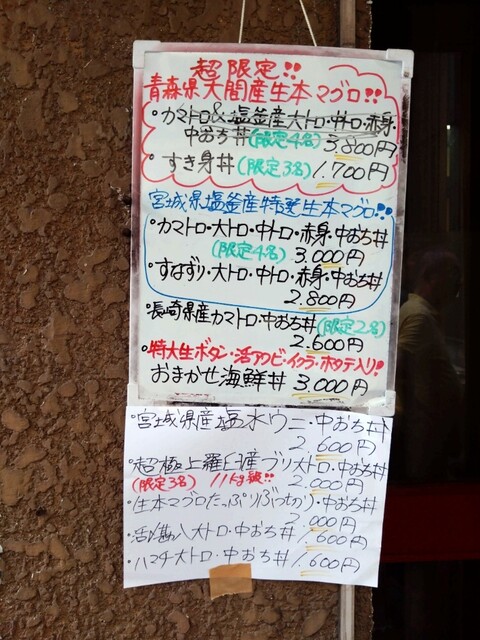 超限定!!
青森県大間産生本マグロ!!
・カマトロ&塩釜産大トロ・中トロ・赤身・
中おち丼(限定4名)3,800円
・すき身丼(限定3名)1,700円
宮城県塩釜産特選生本マグロ!!
・カマトロ・大トロ・中トロ・赤身・中おち丼
(限定4名) 3,000円
・すなずり・大トロ・中トロ・赤身・中おち丼
2,800円
・長崎県産カマトロ・中おち丼(限定2名)
2,600円
・特大生ボタン・活アワビ・イクラ・ホタテ入り!
おまかせ海鮮丼 3,000円
・宮城県産塩水ウニ・中おち丼
2,600円
・超極上羅臼産ブリ大トロ・中おち丼
(限定3名) 11kg級!! 2,000円
・生本マグロたっぷりぶつ切り・中おち丼
2,000円
・活〆勘八大トロ・中おち丼 1,600円
・ハマチ大トロ・中おち丼 1,600円